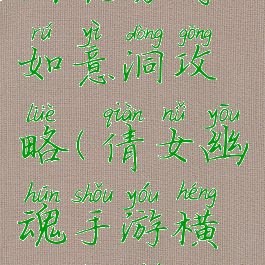 rú yì dòng gōng
如意洞攻
lüè qiàn nǚ yōu
略(倩女幽
hún shǒu yóu héng
魂手游横